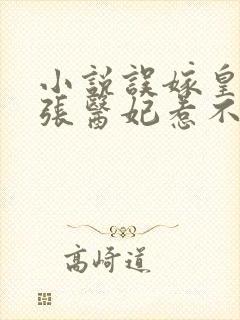 小説誤嫁皇
張醫妃惹不
高崎道